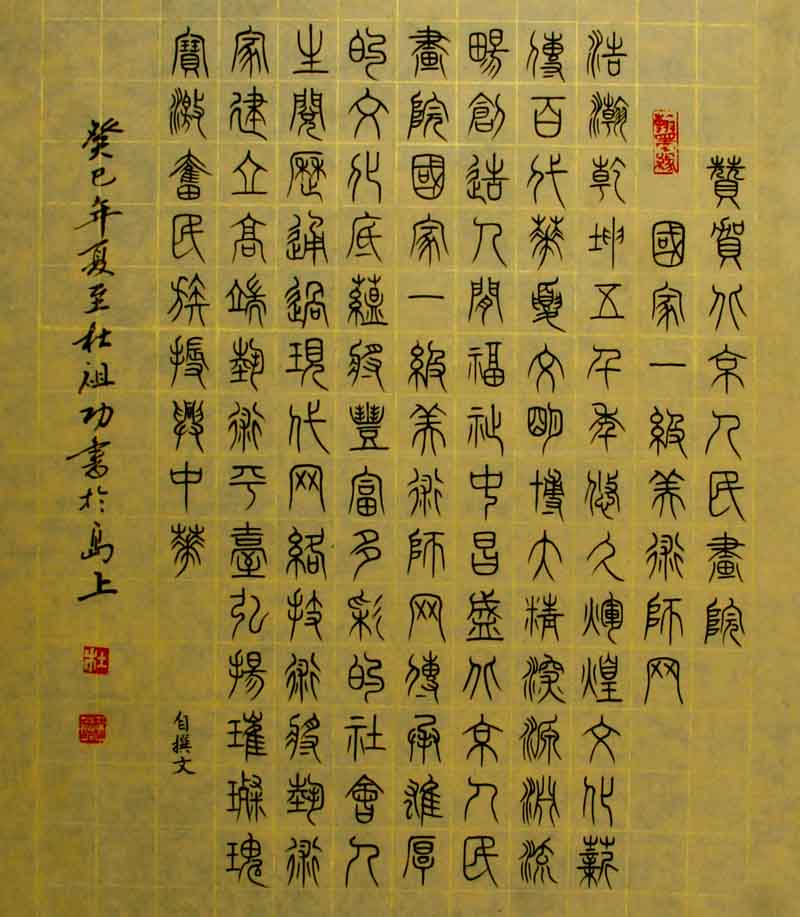 贊賀北京人民畫院
國家一級美術師网
翰墨緣
浩瀚乾坤五千年悠久煇煌文化薪
傳百代華夏文明博大精深源淵流
暢創造人間福祉中昌盛北京人民
畫院國家一級美術師网傳承雄厚
的文化底蘊將豐富多彩的社會人
生閱歷通過現代网絡技術將藝術
家建立高端藝術平臺弘揚璀璨瑰
寶激奮民族振興中華
自撰文
癸巳年夏至杜祖功書於島上
杜